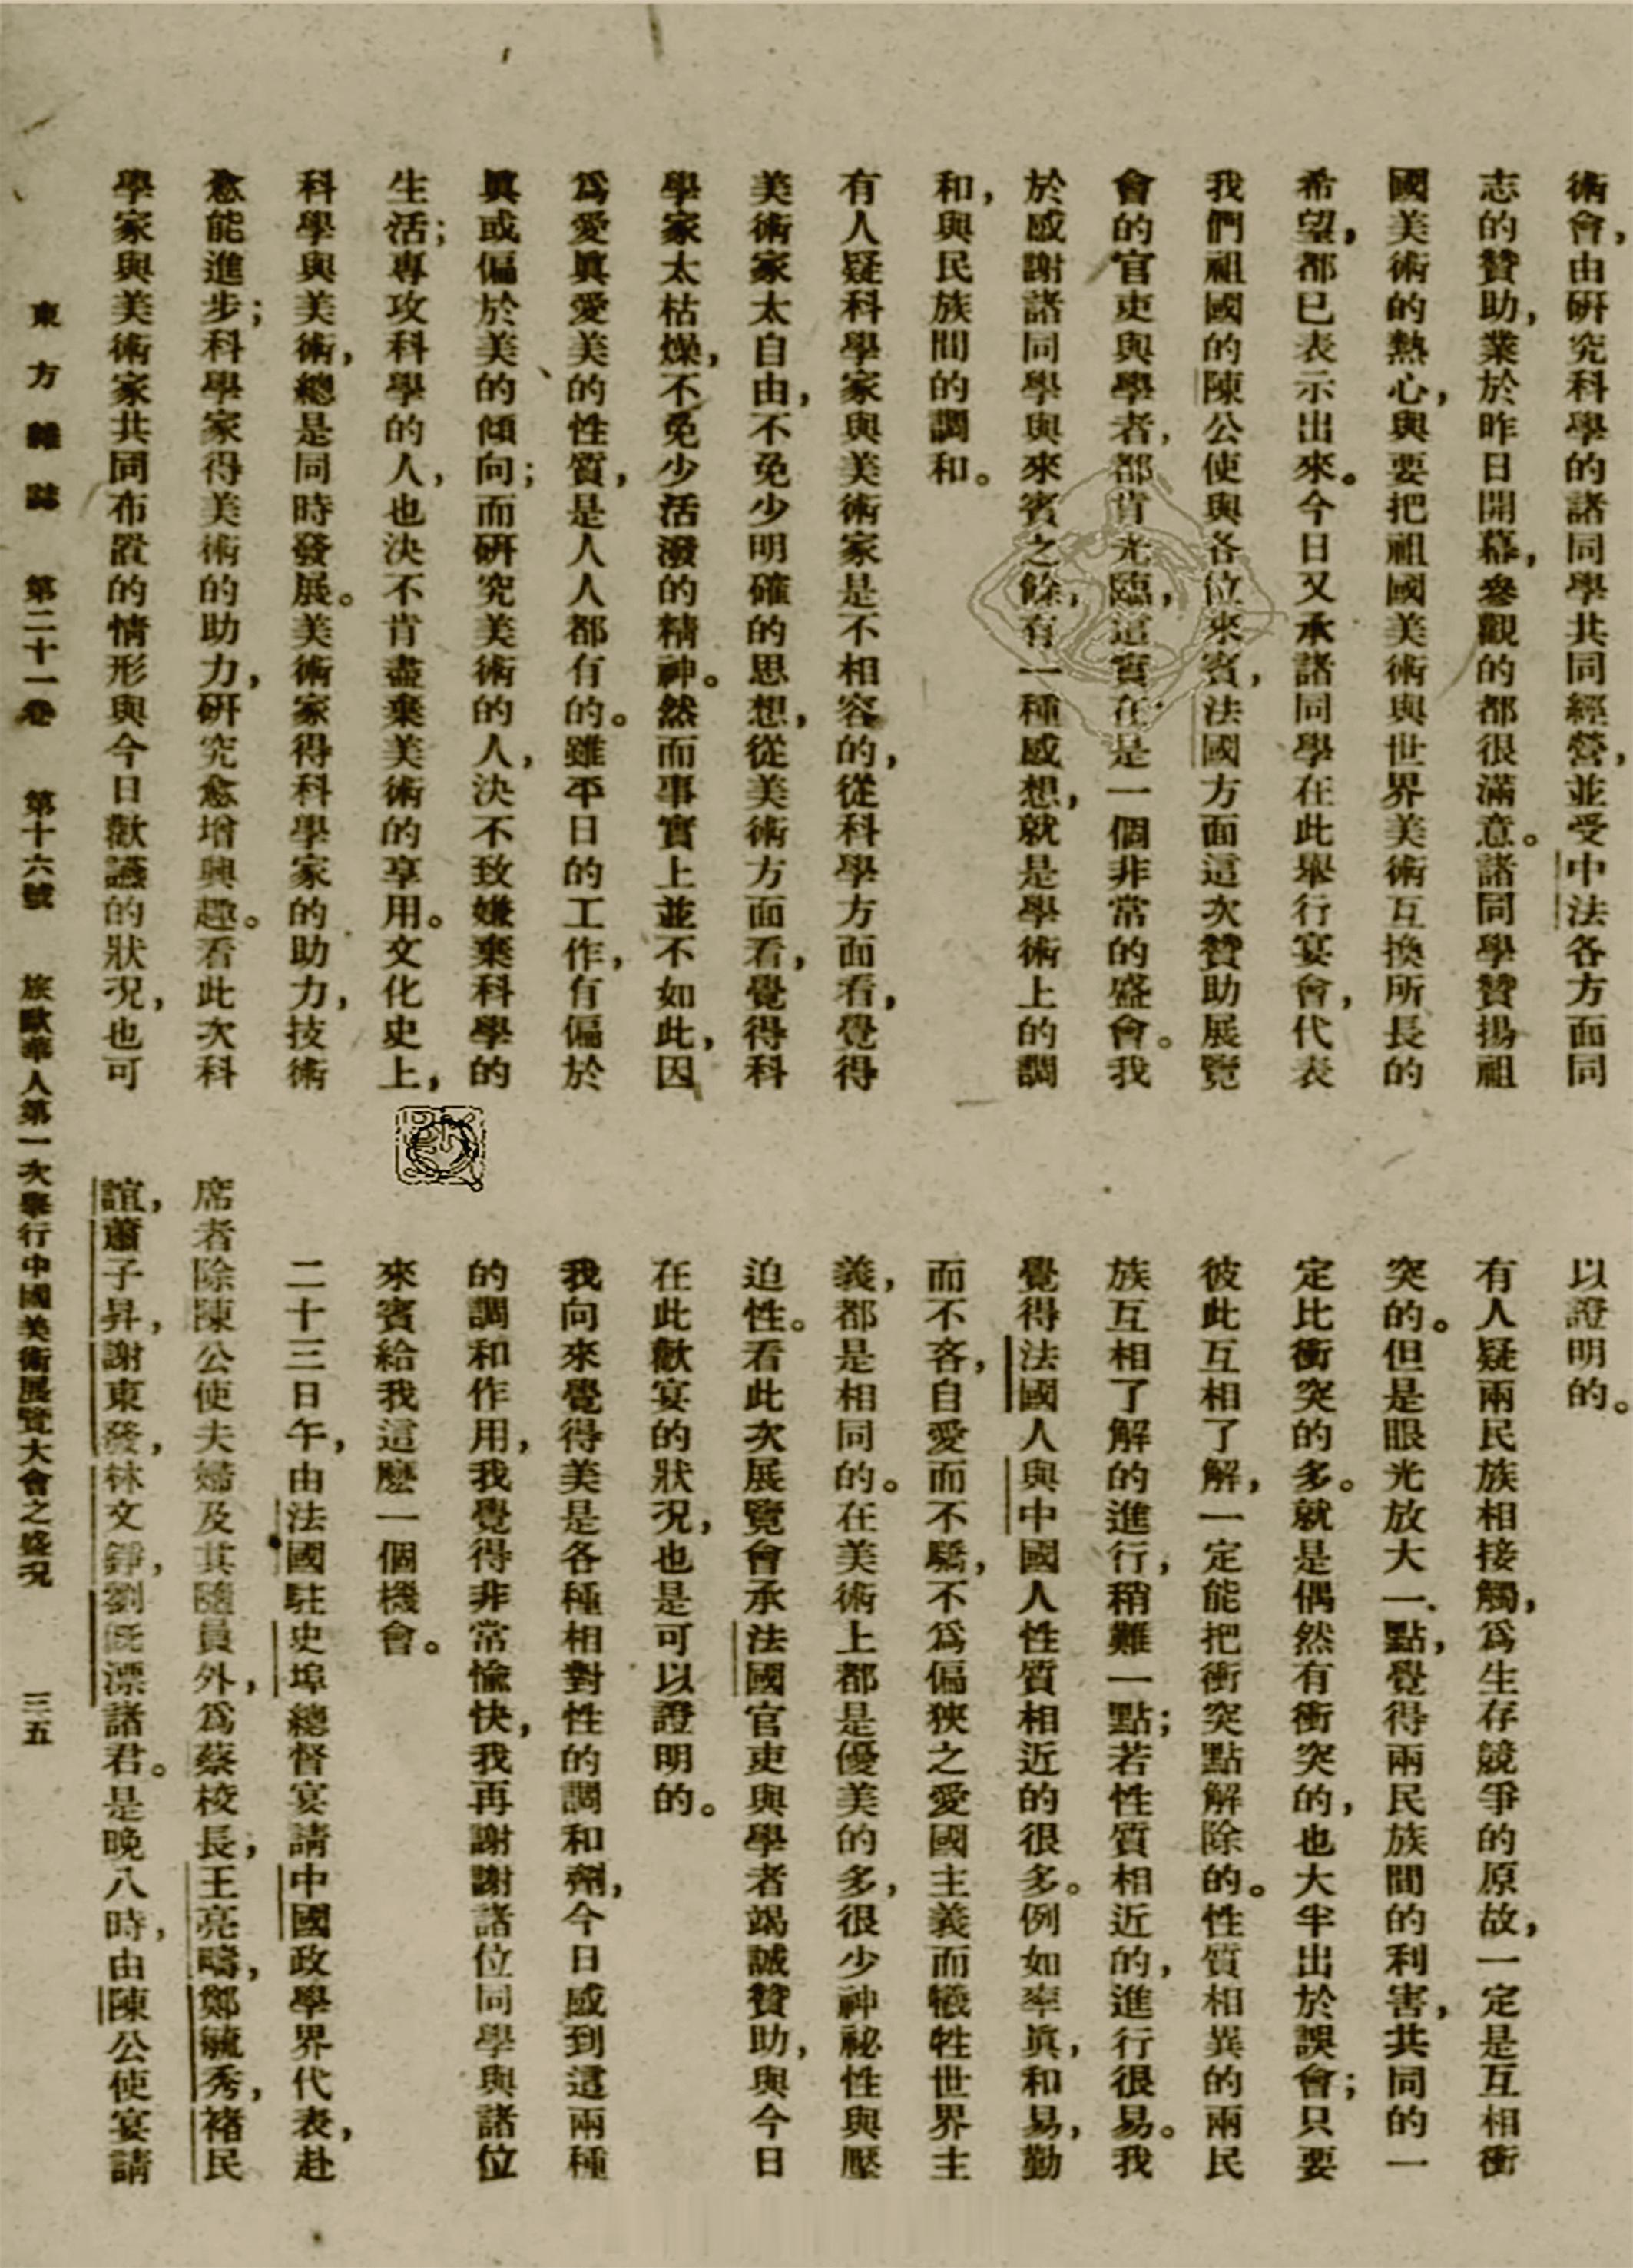 術會，由研究科學的諸同學共同經營，並受中法各方面同
志的贊助，業於昨日開幕，參觀的都很滿意。諸同學贊揚祖
國美術的熱心，與要把祖國美術與世界美術互換所長的
希望，都已表示出來。今日又承諸同學在此舉行宴會，代表
我們祖國的陳公使與各位來賓，法國方面這次贊助展覽
會的官吏與學者，都肯光臨，這實在是一個非常的盛會。我
於感謝諸同學與來賓之餘，有一種感想，就是學術上的調
和，與民族間的調和。
有人疑科學家與美術家是不相容的，從科學方面看，覺得
美術家太自由，不免少明確的思想，從美術方面看，覺得科
學家太枯燥，不免少活潑的精神。然而事實上並不如此，因
爲愛眞愛美的性質，是人人都有的。雖平日的工作，有偏於
眞或偏於美的傾向；而研究美術的人，決不致嫌棄科學的
生活；專攻科學的人，也決不肯盡棄美術的享用。文化史上，
科學與美術，總是同時發展。美術家得科學家的助力，技術
愈能進步；科學家得美術的助力，研究愈增興趣。看此次科
學家與美術家共同布置的情形與今日歡讌的狀況，也可
以證明的。
有人疑兩民族相接觸，爲生存競爭的原故，一定是互相衝
突的。但是眼光放大一點，覺得兩民族間的利害，共同的一
定比衝突的多。就是偶然有衝突的，也大半出於誤會；只要
彼此互相了解，一定能把衝突點解除的。性質相異的兩民
族互相了解的進行，稍難一點；若性質相近的，進行很易。我
覺得法國人與中國人性質相近的很多。例如率眞，和易，勤
而不吝，自愛而不驕，不爲偏狹之愛國主義而犧牲世界主
義，都是相同的。在美術上都是優美的多，很少神祕性與壓
迫性。看此次展覽會承法國官吏與學者竭誠贊助，與今日
在此歡宴的狀況，也是可以證明的。
我向來覺得美是各種相對性的調和劑，今日感到這兩種
的調和作用，我覺得非常愉快，我再謝謝諸位同學與諸位
來賓給我這麼一個機會。
二十三日午，由法國駐史埠總督宴請中國政學界代表，赴
席者除陳公使夫婦及其隨員外，爲蔡校長，王亮疇，鄭毓秀，褚民
誼，蕭子昇，謝東發，林文錚，劉旣漂諸君。是晚八時，由陳公使宴請
東方雜誌 第二十一卷 第十六號 旅歐華人第一次舉行中國美術展覽大會之盛況 三五